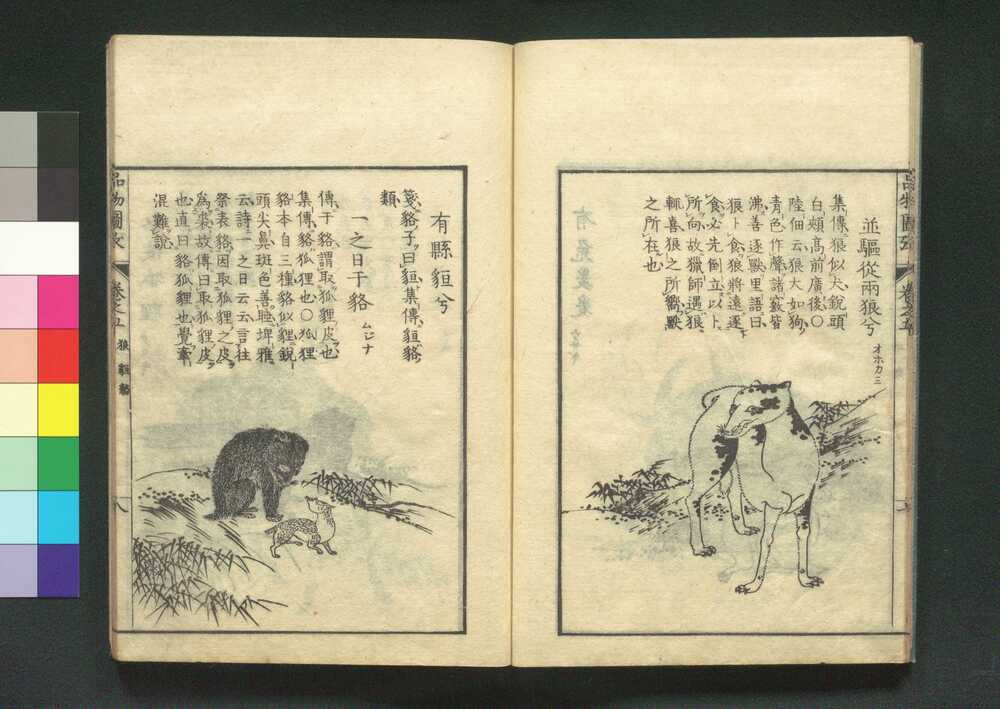 並驅從兩狼兮
オホカミ
集傳狼似犬銳頭
白頰高前廣後〇
陸佃云狼大如狗
青色作聲諸竅皆
沸善逐獸里語曰
狼卜食狼將遠逐
食必先倒立以卜
所向故獵師遇狼
輒喜狼之所嚮獸
之所在也
有縣貆兮
箋貉子曰貆集傳貆貉
類
一之日于貉
ムジナ
傳于貉謂取狐狸皮也
集傳貉狐狸也〇狐狸
貉本自三種貉似狸銳
頭尖鼻斑色善睡埤雅
云詩一之日云云言往
祭表貉因取狐狸之皮
爲裘故傳曰取狐狸皮
也直曰貉狐狸也覺牽
混難說
品物圖攷
卷之五
狼
貆
貉
八